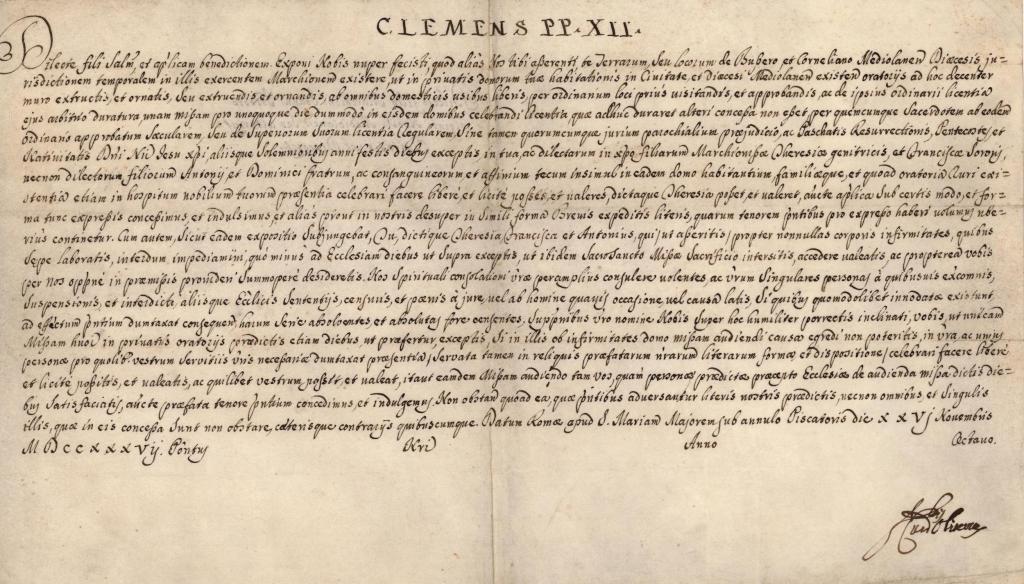 CLEMENS PP. XII.
Dilecte fili Salm, et aplicam benedictionem. Exponi Nobis nuper fecisti, quod alias Nos tibi asserenti te Terrarum, seu locorum de Bubero, et Corneliano Mediolanen Diæcesis, ju-
risdictionem temporalem in illis exercentem Marchionem existere, ut in privatis domorum tuæ habitationis in Civitate, et Diæcesi Mediolanen existen oratorijs ad hoc decenter
muro extructis, et ornatis, seu extruendis, et ornandis, ab omnibus domesticis usibus liberis, per ordinarium loci prius visitandis, et approbandis, ac de ipsius ordinarij licentia
ejus arbitrio duratura unam missam pro unoquoque die dummodo in eisdem domibus celebrandi licentia quæ adhuc duraret alteri concessa non esset, per quemcumque Sacerdotem ab eodem
ordinario approbatum sæcularem, seu de Superiorum suorum licentia Regularem, Sine tamen quorumcumque jurium parochialium præjudicio, ac Paschatis Resurrectionis, Pentecostes, et
Nativitatis Dni Nri Jesu Xpi, aliisque Solemnioribus anni festis diebus exceptis in tua, ac dilectarum in Xpo filiarum Marchionissæ Theresiæ genitricis, et Franciscæ Sororis,
necnon dilectorum filiorum Antonij et Dominici fratrum, ac consanguineorum et affinium tecum insimul in eadem domo habitantium, familiæque, et quoad oratoria Ruri exi-
stentia etiam in hospitum nobilium tuorum præsentia celebrari facere libere, et licite posses, et valeres, dictaque Theresia posset, et valeret, aucte aplica sub certis modo, et for-
ma tunc expressis concessimus, et indulsimus, et alias prout in nostris desuper in simili forma Brevis expeditis literis, quarum tenorem pntibus pro expresso haberi volumus ube-
rius continetur. Cum autem, sicut eadem expositio subjungebat, Tu, dictique Theresia, Francisca et Antonius, qui, ut asseritis, propter nonnullas corporis infirmitates, quibus
sepe laboratis, interdum impediamini, quo minus ad Ecclesiam diebus ut supra exceptis, ut ibidem Sacrosancto Missæ Sacrificio intersitis, accedere valeatis, ac propterea vobis
per nos oppne in præmissis provideri summopere desideretis. Nos Spirituali consolationi vræ peramplius consulere volentes, ac vrum singulares personas à quibusvis excomnis,
suspensionis, et interdicti, aliisque Ecclicis Sententijs, censuris, et pænis à jure, vel ab homine quavis occasione, vel causa latis, si quibus quomodolibet innodatæ existunt,
ad effectum pntium dumtaxat consequen, harum serie absolventes, et absolutas fore censentes, supplnibus vro nomine Nobis super hoc humiliter porrectis inclinati, vobis, ut unicam
Missam huoi in privatis oratorijs prædictis etiam diebus, ut præfertur, exceptis, si in illis ob infirmitates domo missam audiendi causa egredi non poteritis, in vra, ac unius
personæ pro quolibet vestrum servitiis vris necessariæ dumtaxat præsentia, servata tamen in reliquis præfatarum nrarum literarum forma, et dispositione, celebrari facere libere
et licite possitis, et valeatis, ac quilibet vestrum possit, et valeat, itaut eandem Missam audiendo tam vos, quam personæ prædictæ præcepto Ecclesiæ de audienda missa dictis die-
bus satisfaciatis, aucte præfata tenore pntium concedimus, et indulgemus. Non obstan quoad ea, quæ pntibus adversantur literis nostris prædictis, necnon omnibus, et singulis
illis, quæ in eis concessa sunt non obstare, cæterisque contrarijs quibuscumque. Datum Romæ apud S. Mariam Majorem sub annulo Piscatoris die XXVj Novembris
MDCCXXXVij. Pontus Nri Anno Octavo.